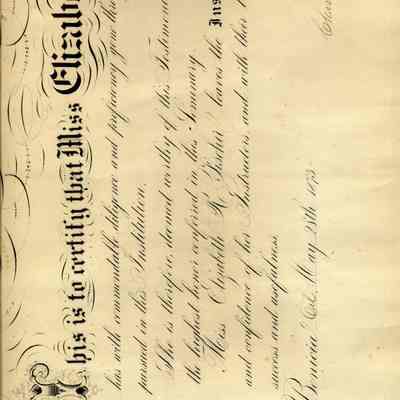 This is to certify that Miss Elizab
has with commendable diligence and proficiency gone thro
pursued in this Institution.
She is therefore, deemed worthy of this Testimoni
the highest honor conferred in this Seminary
Miss Elizabeth R. Fischer leaves the Ins
and confidence of her Instructors, and with their
success and usefulness.
Benicia Cal. May 28th 1873